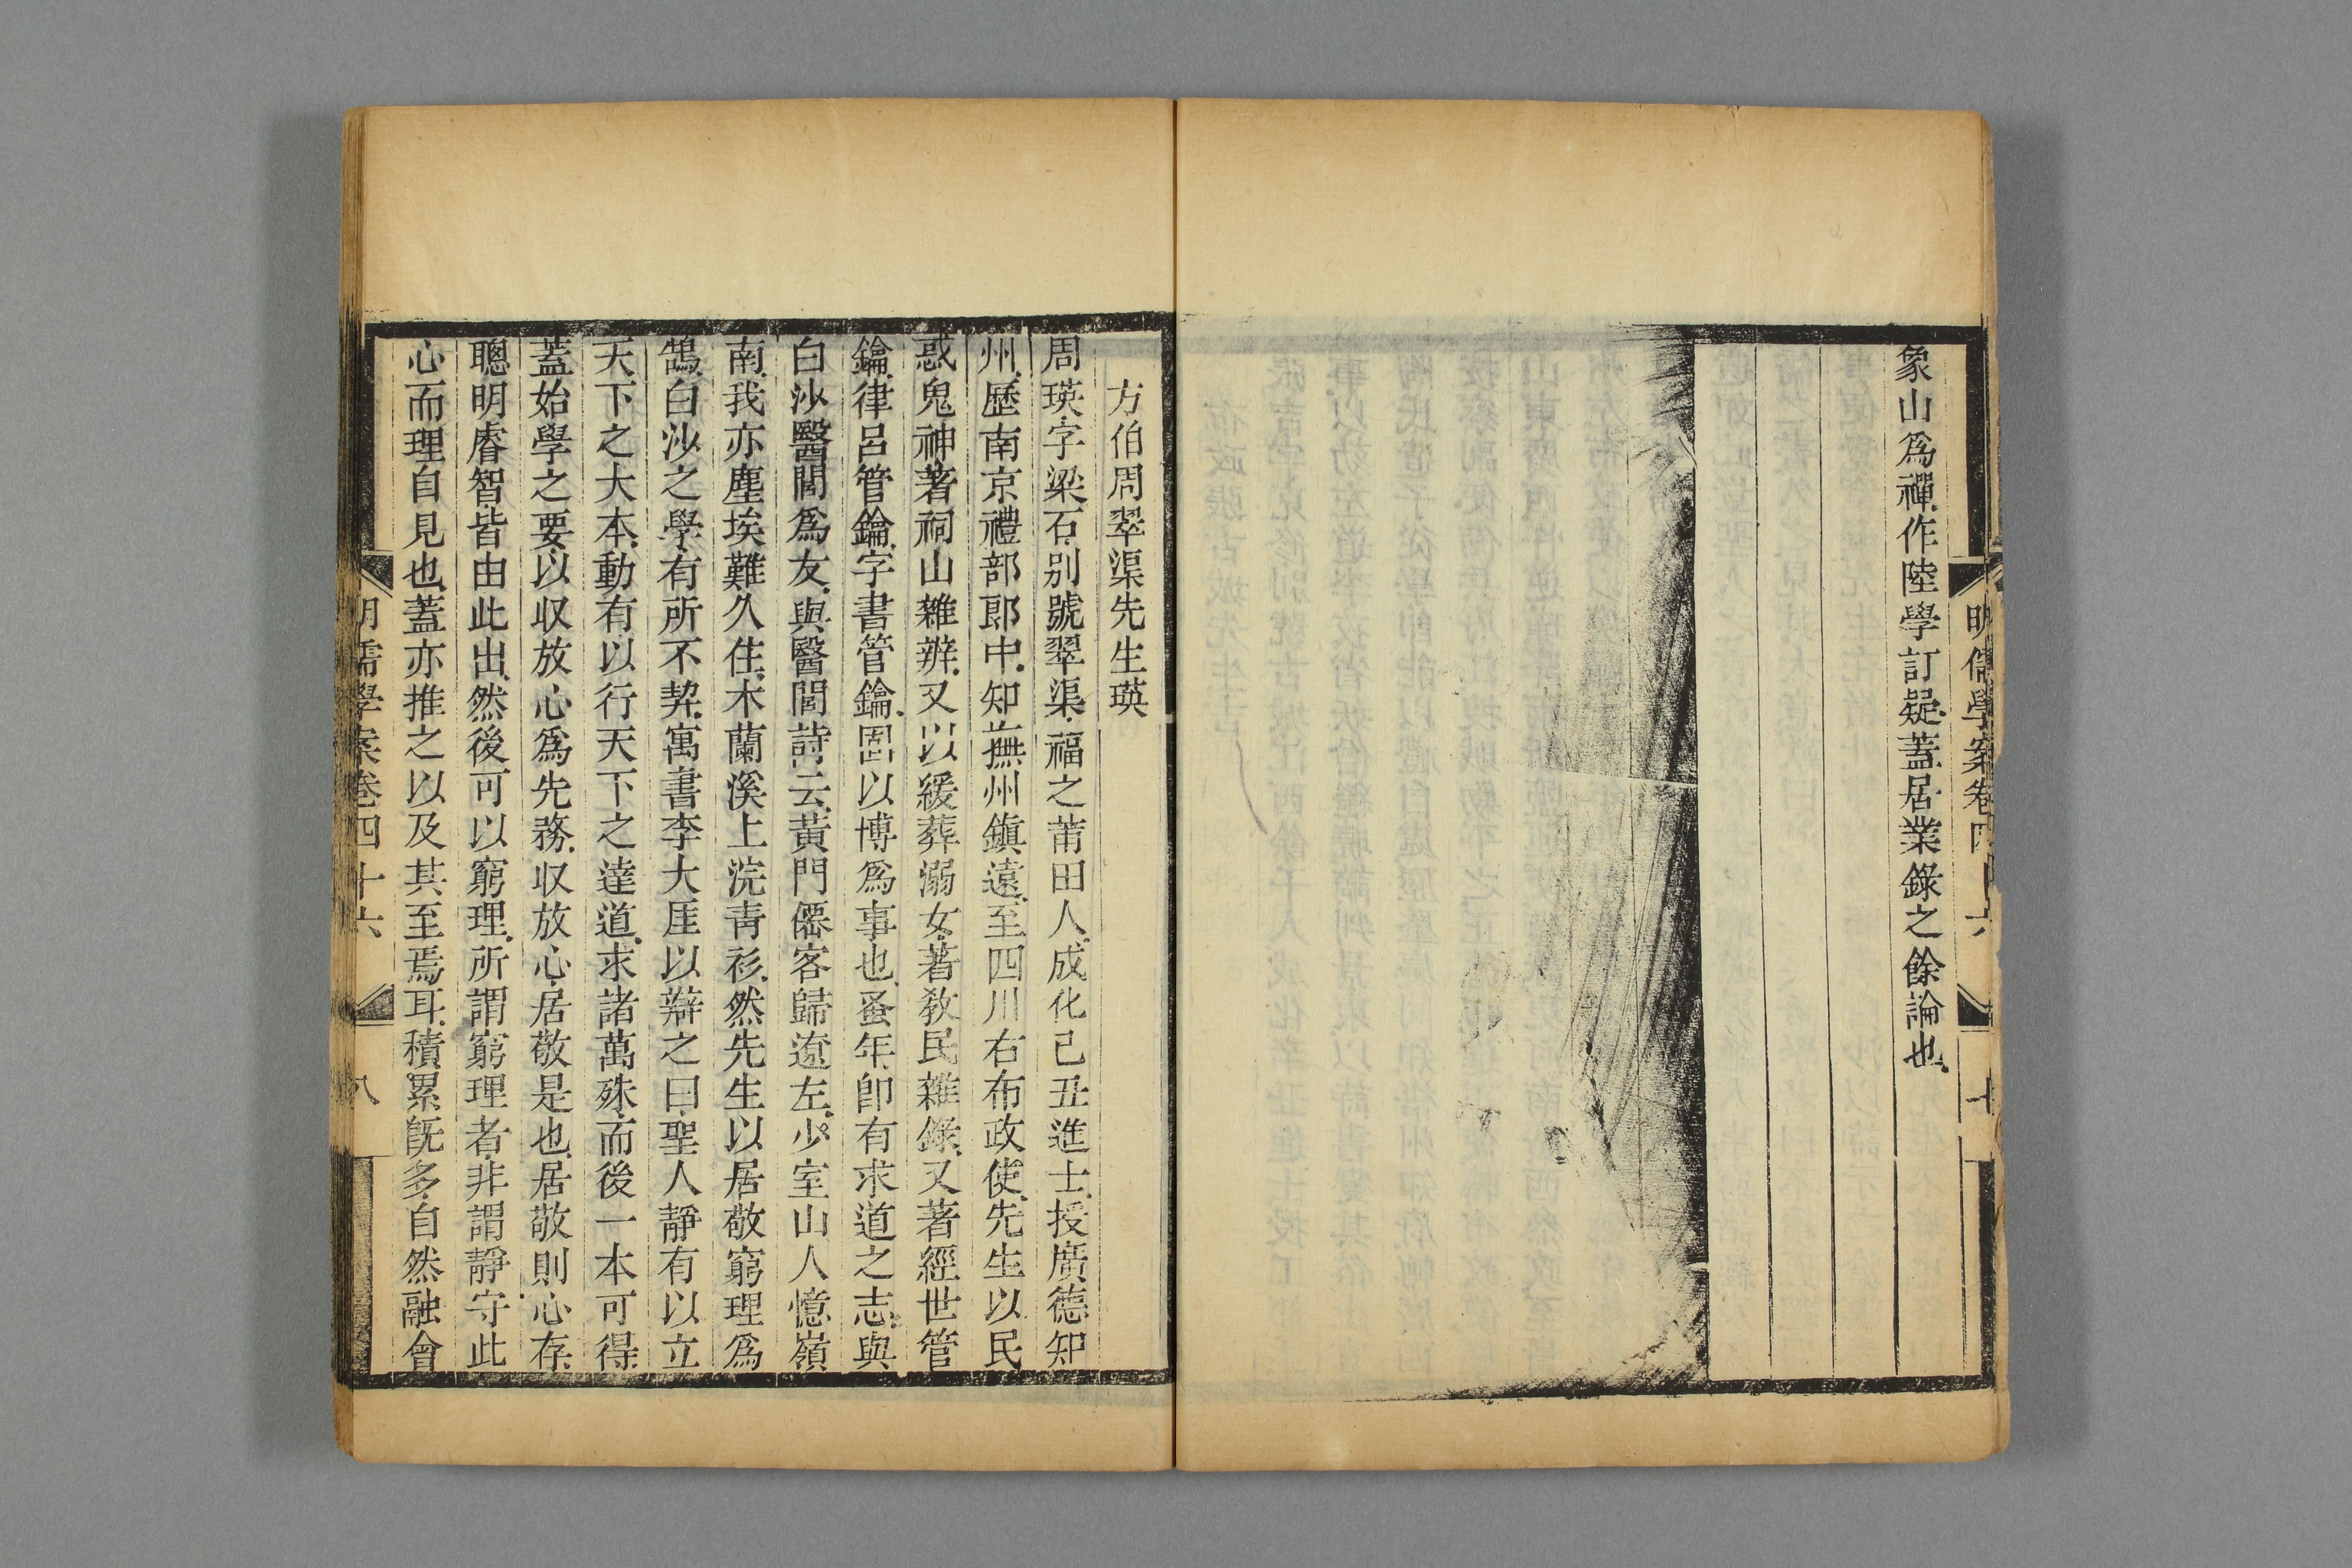 象山爲禪作陸學訂疑蓋居業錄之餘論也
明儒學案卷四十六 七
方伯周翠渠先生瑛
周瑛字梁石別號翠渠福之莆田人成化己丑進士授廣德知
州歷南京禮部郎中知撫州鎮遠至四川右布政使先生以民
惑鬼神著祠山雜辨又以緩葬溺女著教民雜錄又著經世管
鑰律呂管鑰字書管鑰固以博爲事也蚤年卽有求道之志與
白沙醫閭爲友與醫閭詩云黃門僊客歸遼左少室山人憶嶺
南我亦塵埃難久住木蘭溪上浣青衫然先生以居敬窮理爲
鵠白沙之學有所不契寓書李大厓以辯之曰聖人靜有以立
天下之大本動有以行天下之達道求諸萬殊而後一本可得
蓋始學之要以収放心爲先務収放心居敬是也居敬則心存
聰明睿智皆由此出然後可以窮理所謂窮理者非謂靜守此
心而理自見也蓋亦推之以及其至焉耳積累旣多自然融會
明儒學案卷四十六 八